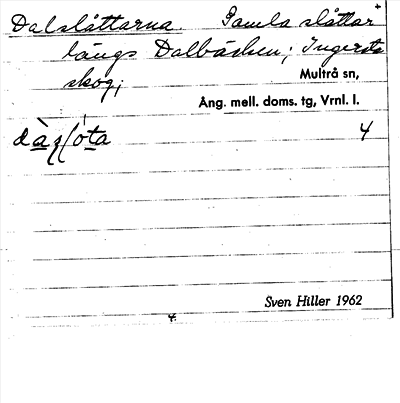 Dalslåttarna. Gamla slåttar
längs Dalbäcken; Ingersta
skog; Multrå sn,
Ång. mell. doms. tg, Vrnl. l.
4
Sven Hiller 1962
4.